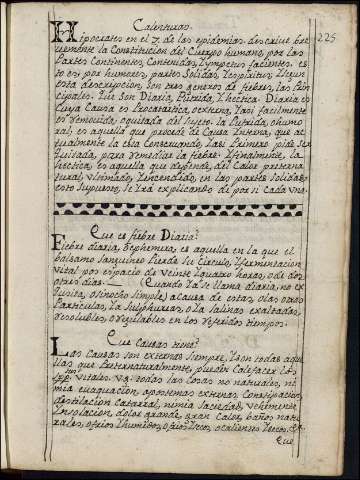 Calenturas.
225
Hipocrates en el 7 de las epidemias descrive bre
vemente la Constitucion del Cuerpo humano, por las
Partes Continentes, Contenidas, Ympetus facientes. es
to es por humores, partes Solidas, Espiritus. Segun
esta descripcion, son tres generos de fiebres, las Prin
cipales. Que son Diaria, Putrida, Yhectica. Diaria es
Cuya Causa es Procatartica, externa, Yasi facilmente
es removida, o quitada del Sujeto. la Putrida, o humo
ral, es aquella que procede de Causa Interna, que ac
tualmente la esta Conservando, Yasi Primero pide Ser
quitada, para remediar la fiebre. Yfinalmente, la
hectica, es aquella que depende, del Calor preterna
tural, ultimado, Yencendido, en las partes Solidas.
esto Supuesto, Se irá explicando de por si Cada Una.
Que es fiebre Diaria?
Fiebre diaria, o ephemera, es aquella en la que el
balsamo Sanguineo Pierde Su Circulo, Yfermentacion
Vital por espacio de Veinte Yquatro horas, o de dos
o tres dias. (Quando Ya Se llama diaria, no ex
quisita, o sinocho Simple) a causa de estas, o las otras
Particulas, Ya Sulphureas, o Ya Salinas exaltadas,
resolubles, o Vegilables en los referidos tiempos.
Que Causas tiene?
Las Causas son externas Siempre, Yson todas aque
llas que Preternaturalmente, pueden Calefacer los
espiritus Vitales. Va. todas las Cosas no naturales, ni
mia evacuacion, apostemas externas Constipacion,
destilacion Catarral, nimia Saciedad, Vehimente
Insolacion, dolor grande, gran Calor, baños natu
rales, o frios, humidos, o frios Secos, o calientes Secos, &a.
Que